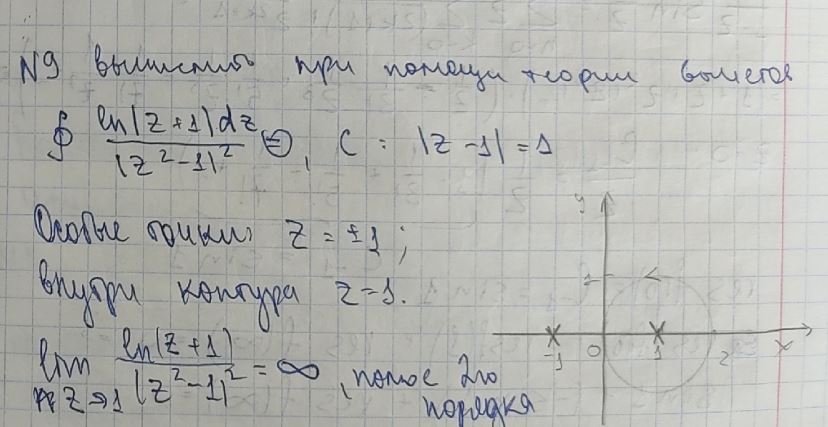 N9 вычислить при помощи теории вычетов
∮ ln(z+1)dz / (z²-1)² ⊜, C: |z-1|=1
Особые точки: z = ±1;
внутри контура z=1.
lim z→1 ln(z+1) / (z²-1)² = ∞, полюс 2го
порядка
y
1
-1 0 1 2 x